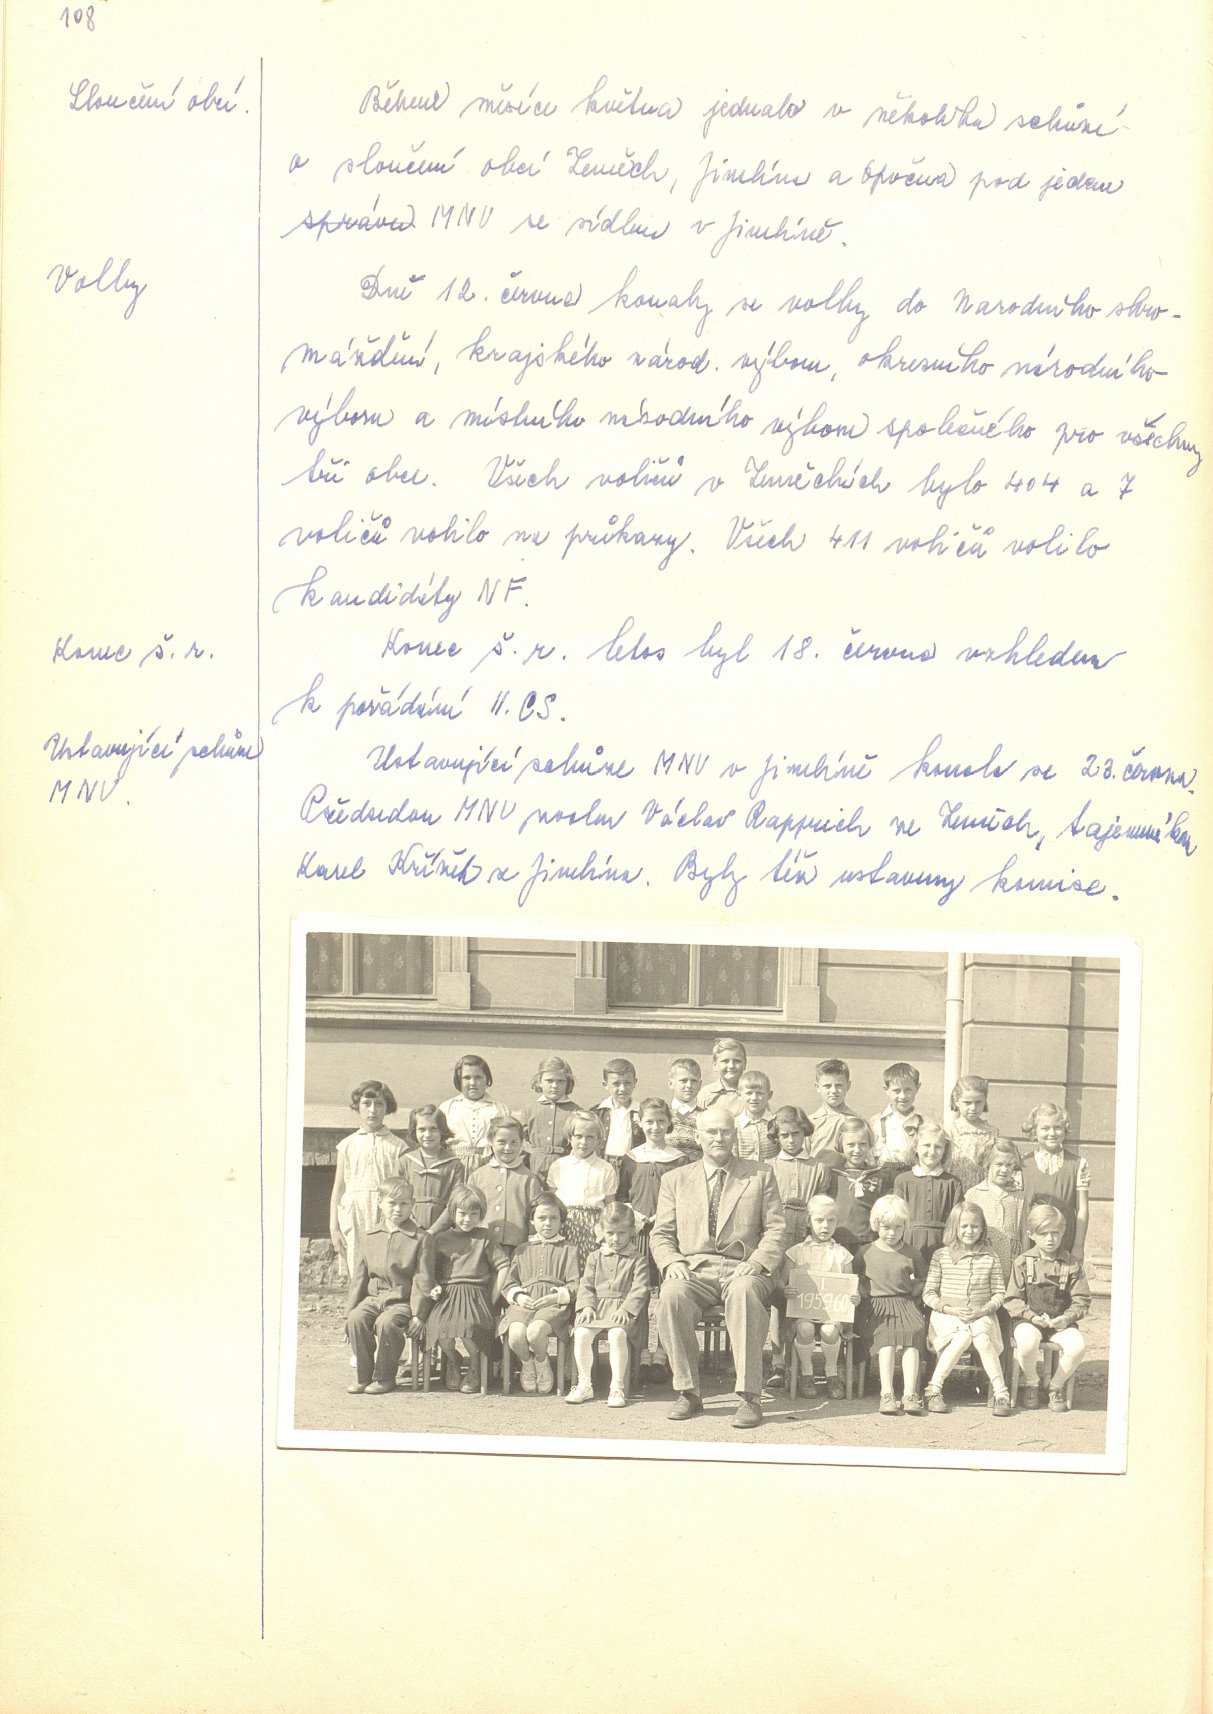 108
Sloučení obcí.
Během měsíce května jednalo v několika schůzí
o sloučení obcí Zeměch, Jimlína a Opočna pod jeden
správu MNV se sídlem v Jimlíně.
Volby
Dně 12. června konaly se volby do Narodního shro-
máždění, krajského národ. výboru, okresního národního
výboru a místního národního výboru společného pro všechny
tři obce. Všech voličů v Zeměchách bylo 404 a 7
voličů volilo na průkazy. Všech 411 voličů volilo
kandidáty NF.
Konec š. r.
Konec š. r. letos byl 18. června vzhledem
k pořádání II. CS.
Ustavující schůze
MNV.
Ustavující schůze MNV v Jimlíně konala se 23. června.
Předsedou MNV zvolen Václav Rapprich ze Zeměch, tajemníkem
Karel Křížek z Jimlína. Byly též ustaveny komise.
I.
1959/60